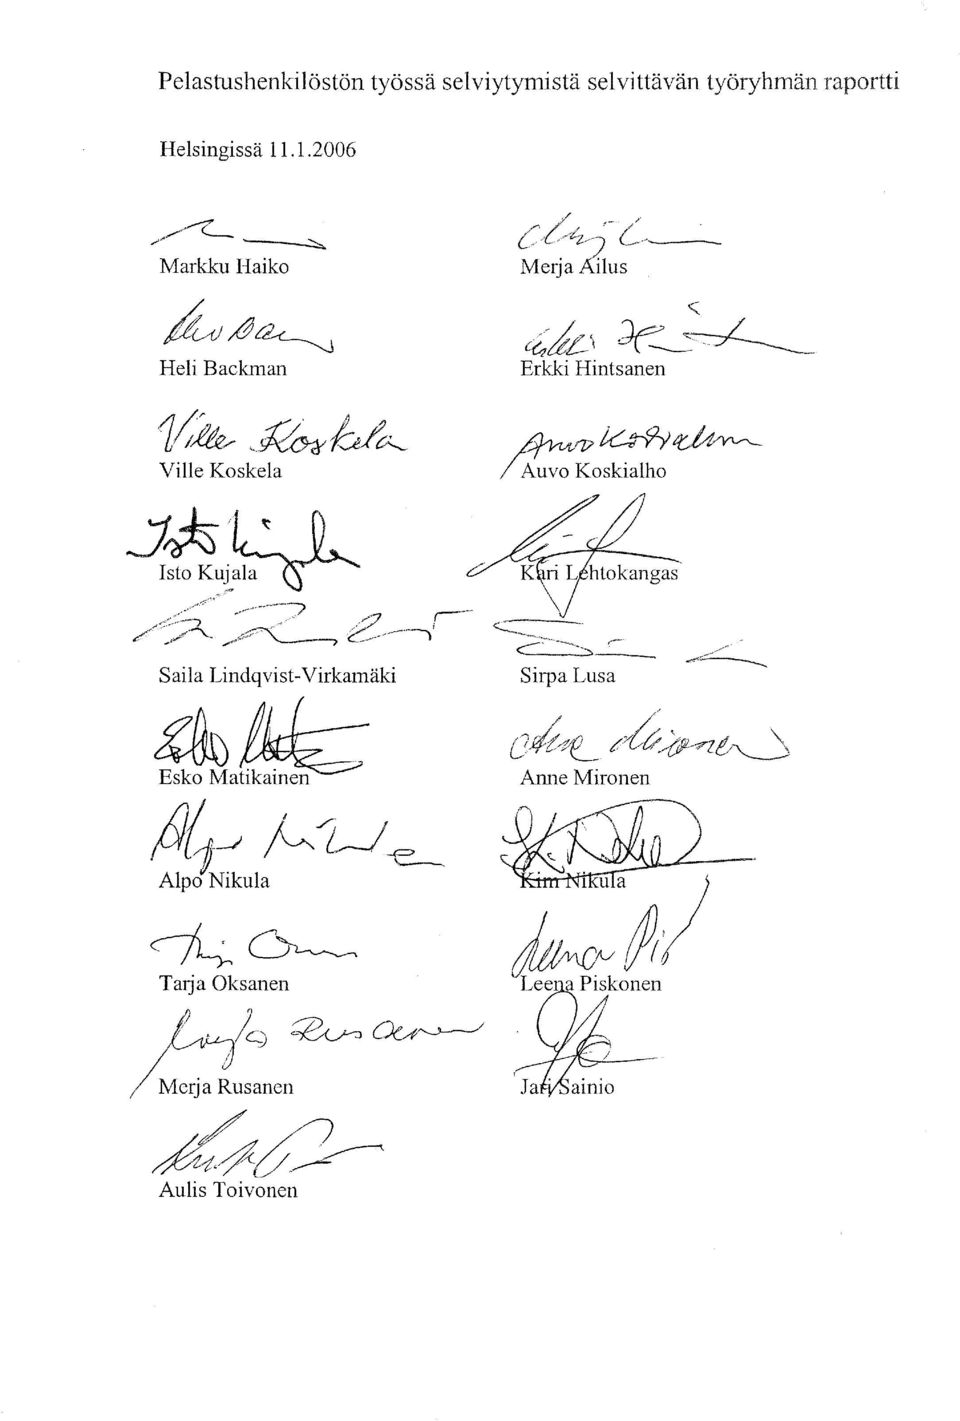 Pelastushenkilöstön työssä selviytymistä selvittävän työryhmän raportti
Helsingissä 11.1.2006
Markku Haiko
Merja Ailus
Heli Backman
Erkki Hintsanen
Ville Koskela
Ville Koskela
Auvo Koskialho
Auvo Koskialho
Isto Kujala
Isto Kujala
Kari Lehtokangas
Saila Lindqvist-Virkamäki
Sirpa Lusa
Esko Matikainen
Anne Mironen
Anne Mironen
Alpo Nikula
Kim Nikula
Tarja Oksanen
Leena Piskonen
Merja Rusanen
Merja Rusanen
Jari Sainio
Aulis Toivonen